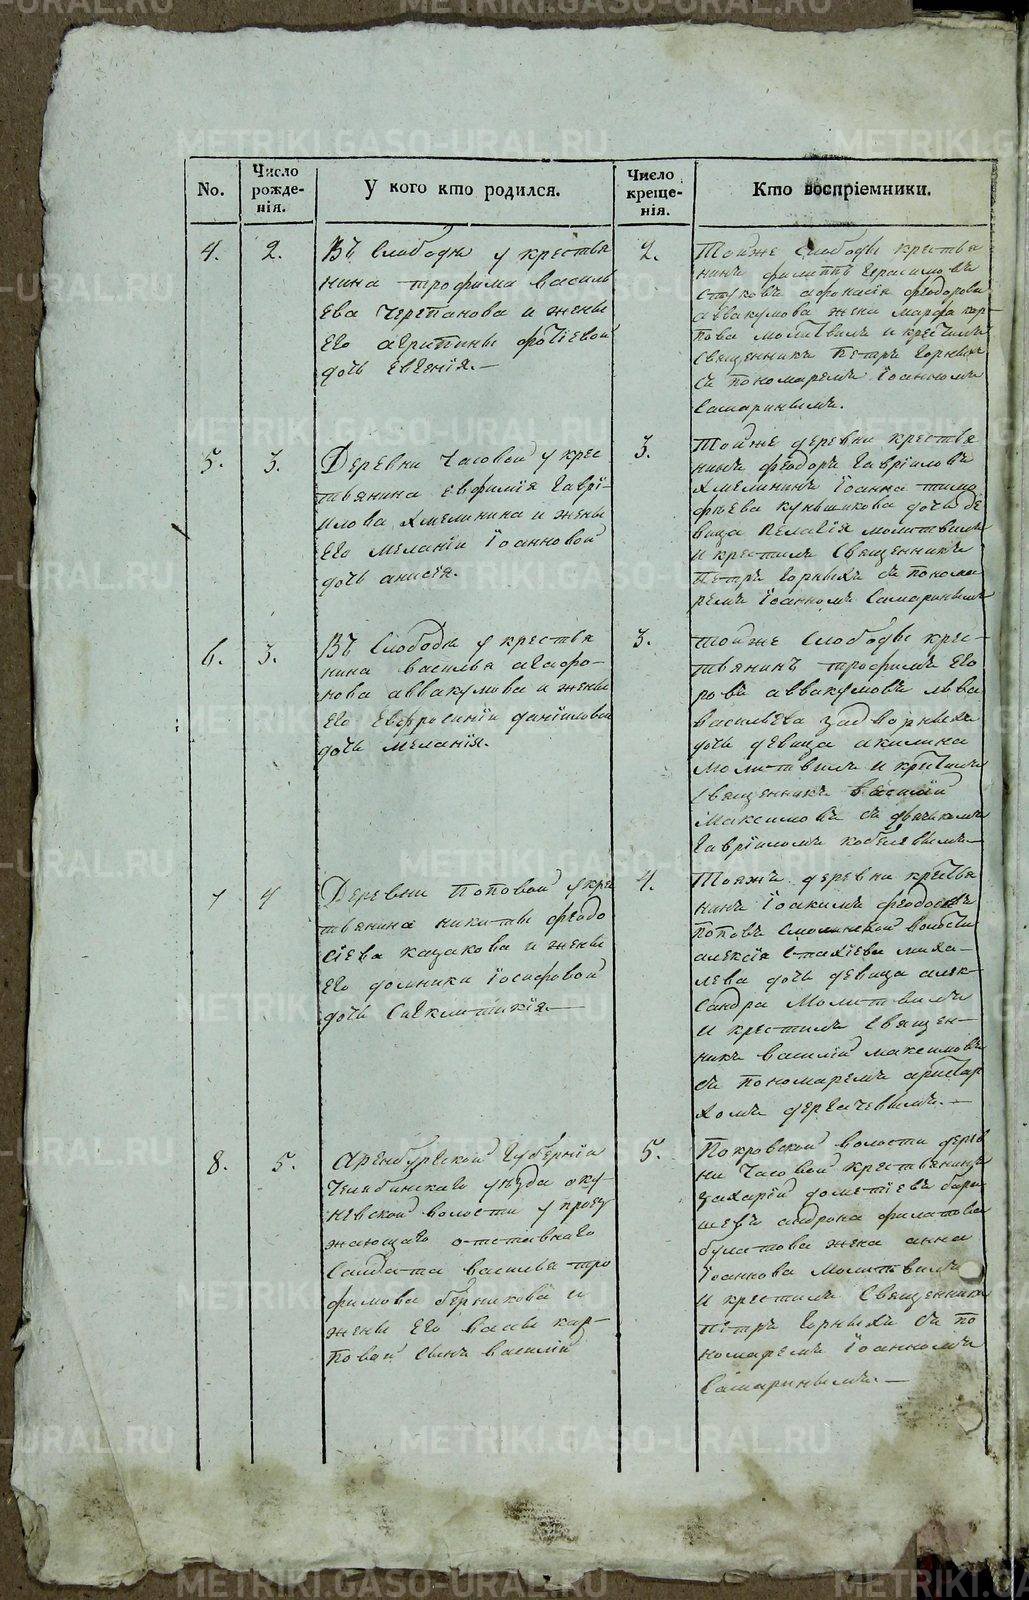 No.
Число рожде-нія.
У кого кто родился.
Число креще-нія.
Кто воспріемники.
4.
2.
Въ Слободѣ у крестья
нина трофима василь
ева черепанова и жены
его агрипины фотіевой
дочь евгенія.—
2.
Тойже слободы крестья
нинъ филиппъ герасимовъ
афонасія феодорова
аввакумова жена марфа кар-
пова молитвилъ и крестилъ
священникъ петръ горныхъ
съ пономаремъ іоанномъ
Самаринымъ.
5.
3.
Деревни часовой у крес
тьянина евфимія гаврі-
илова хмелинина и жены
его меланіи іоанновой
дочь анисія.
3.
Тойже деревни крестья
нинъ феодоръ гавріиловъ
хмелининъ іоанна тимо
фѣева кунышкова дочь дѣ
вица пелагія молитвилъ
и крестилъ священникъ
петръ горныхъ съ понома
ремъ іоанномъ Самаринымъ
6.
3.
Въ Слободѣ у крестья
нина василья агафо-
нова аввакумова и жены
его евфросиніи даніиловой
дочь меланія.
3.
тойже слободы крес-
тьянинъ трофимъ его
ровъ аввакумовъ льва
васильева задворныхъ
дочь девица акилина
молитвилъ и крестилъ
священникъ василій
Максимовъ съ дьячкомъ
гавріиломъ кобелевымъ.—
7
4
Деревни поповой у крес
тьянина никиты феодо
сіева казакова и жены
его домники іосифовой
дочь Сигклитикія—
4.
Тояжъ деревни крестья
нинъ іоакимъ феодосѣевъ
поповъ Смолинской волости
алексія Стахіева миха-
лева дочь девица алек-
сандра Молитвилъ
И крестилъ священ-
никъ василій максимовъ
съ пономаремъ аристар
хомъ дергачевымъ.—
8.
5.
Аренбургской губерніи
Челябинскаго уѣзда оку
невской волости у проез
жающаго отставнаго
Салдата василья тро
фимова берникова и
жены его васы кар-
повой сынъ василій
5.
Покровской волости дерев
ни часовой крестьянинъ
захарій дометіевъ бары
шевъ андрона филатова
булатова жена анна
іоаннова молитвилъ
И крестилъ священникъ
петръ горныхъ съ по
номаремъ іоанномъ
Самаринымъ.—
METRIKI.GASO-URAL.RU